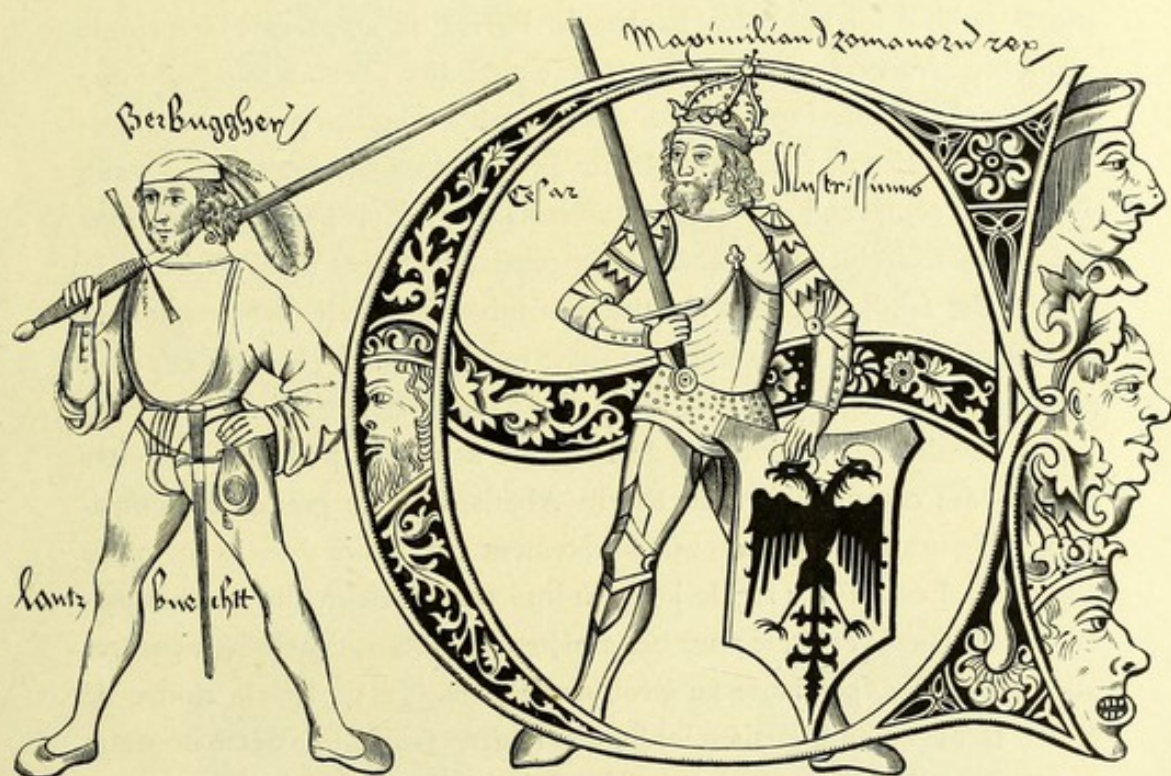 Maximiliand romanorū rex
Berbuggher
Cesar Illustrissimus
lantz knechtt